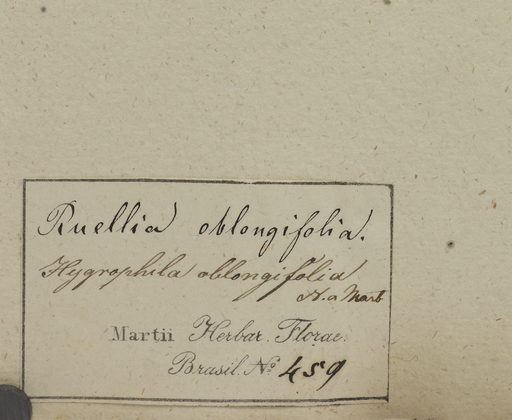 Ruellia oblongifolia.
Hygrophila oblongifolia
N. a Mart
Martii Herbar. Florae
Brasil. No 459